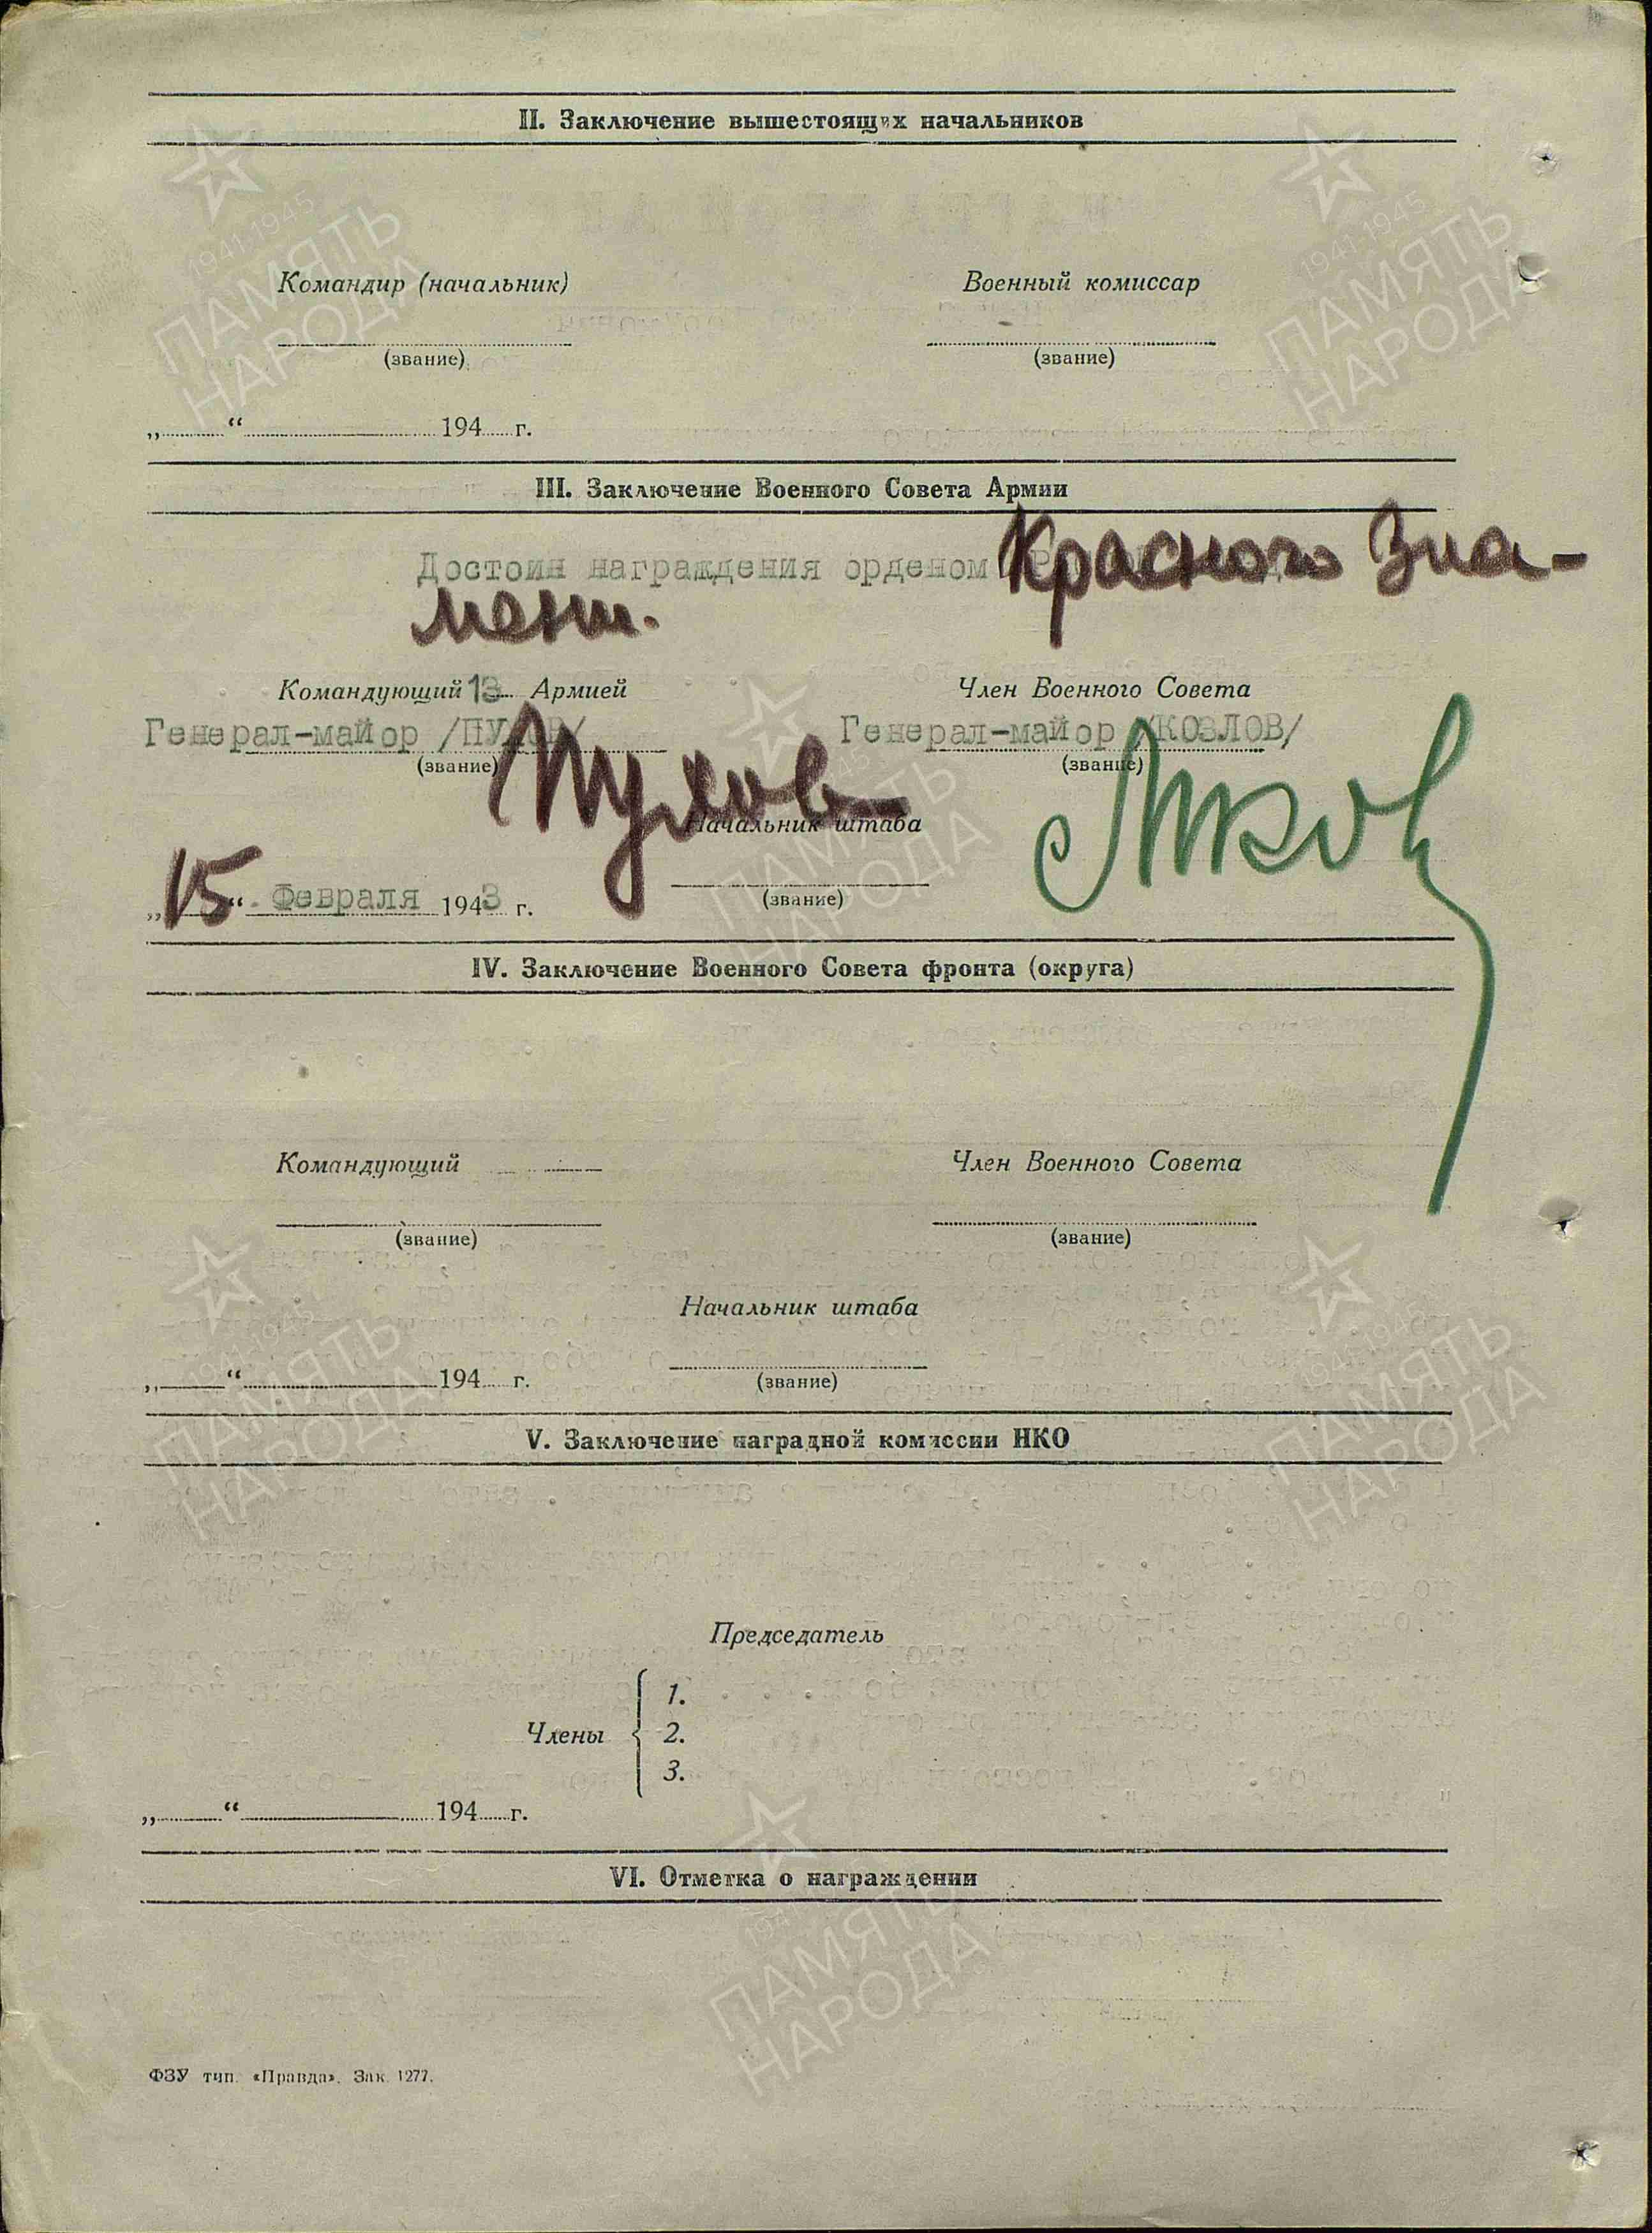 II. Заключение вышестоящих начальников
Командир (начальник) Военный комиссар
(звание) (звание)
„ “ 194 г.
III. Заключение Военного Совета Армии
Достоин награждения орденом Красного Зна-
мени.
Командующий 13 Армией Член Военного Совета
Генерал-майор /ПУХОВ/ Генерал-майор /КОЗЛОВ/
(звание) (звание)
Пухов
Начальник штаба
„15“ Февраля 1943 г.
(звание)
IV. Заключение Военного Совета фронта (округа)
Командующий Член Военного Совета
(звание) (звание)
Начальник штаба
„ “ 194 г.
(звание)
V. Заключение наградной комиссии НКО
Председатель
Члены
1.
2.
3.
„ “ 194 г.
VI. Отметка о награждении
ФЗУ тип. «Правда». Зак. 1277.
1941-1945
ПАМЯТЬ
НАРОДА
1941-1945
ПАМЯТЬ
НАРОДА
1941-1945
ПАМЯТЬ
НАРОДА
1941-1945
ПАМЯТЬ
НАРОДА
1941-1945
ПАМЯТЬ
НАРОДА
1941-1945
ПАМЯТЬ
НАРОДА